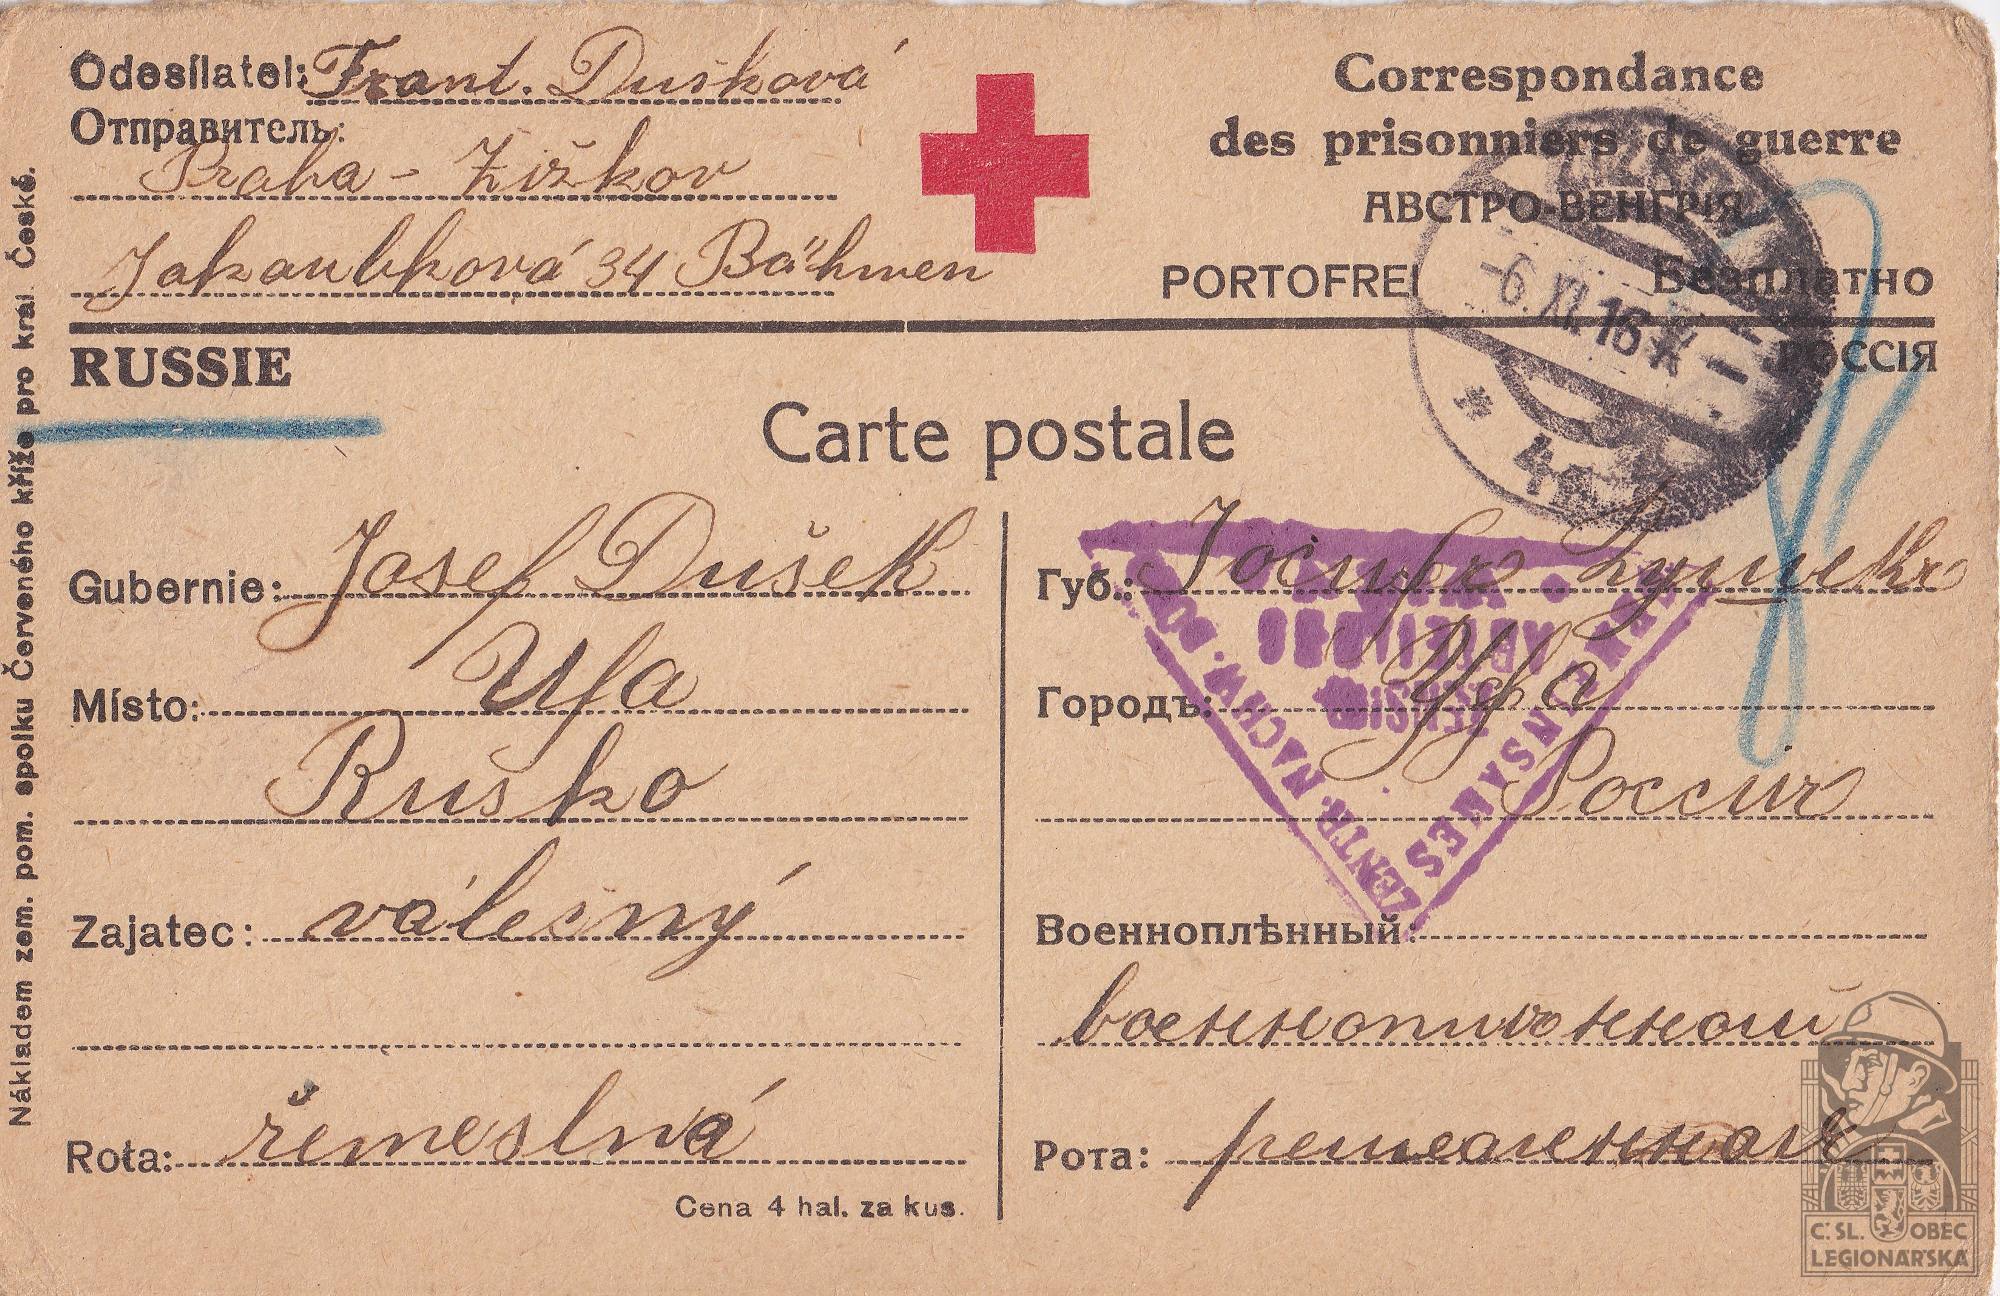 Odesílatel: Frant. Dušková
Отправитель:
Praha - Žižkov
Jakoubková 34 Bähmen
Correspondance
des prisonniers de guerre
АВСТРО-ВЕНГРІЯ
PORTOFREI Безплатно
RUSSIE РОССІЯ
Carte postale
-6.XI.16
Gubernie: Josef Dušek
Místo: Ufa
Rusko
Zajatec: válečný
Rota: řemeslná
Cena 4 hal. za kus.
Губ.: Іосифъ Душекъ
Городъ: Уфа
Россия
Военноплѣнный:
Рота:
ZENTR. NACHW. BUR
ZENSUR
ABTEILUNG
Nákladem zem. pom. spolku Červeného kříže pro král. České.
Č. SL. OBEC
LEGIONÁŘSKÁ